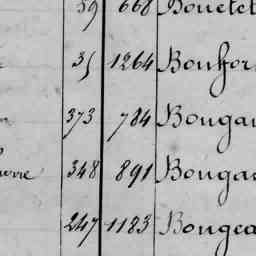 39 668 Bouetel
35 1264 Bonfor
373 784 Bougau
348 891 Bougau
247 1183 Bougea